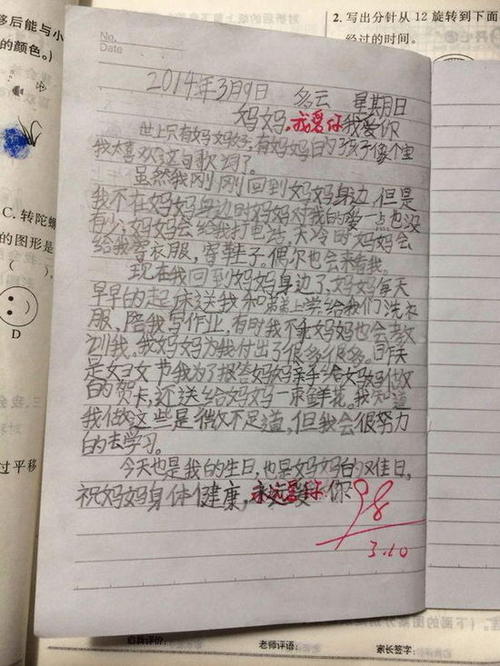 移后能与小
的颜色。)
2. 写出分针从 12 旋转到下面
经过的时间。
No.
Date
2014年3月9日 多云 星期日
妈妈,我爱你我爱你
世上只有妈妈好,有妈妈的孩子像个宝
我太喜欢这句歌词了。
虽然我刚刚回到妈妈身边,但是
我不在妈妈身边时妈妈对我的爱一点也没
有少,妈妈会给我打电话,天冷时妈妈会
给我寄衣服,寄鞋子。偶尔也会来看我。
现在我回到妈妈身边了,妈妈每天
早早的起床送我和弟弟上学给我们洗衣
服,陪我写作业,有时我不乖妈妈也会教
训我。我妈妈为我付出了很多很多。昨天
是妇女节我为了报答妈妈亲手给妈妈做
的贺卡,还送给妈妈一束鲜花。我知道
我做这些是微不足道,但我会很努力
的去学习。
今天也是我的生日,也是妈妈的
祝妈妈身体健康,永远爱你
98
3.10
C. 转陀螺
的图形是
( )。
D
过平移
自我评价:
老师评语:
家长签字: